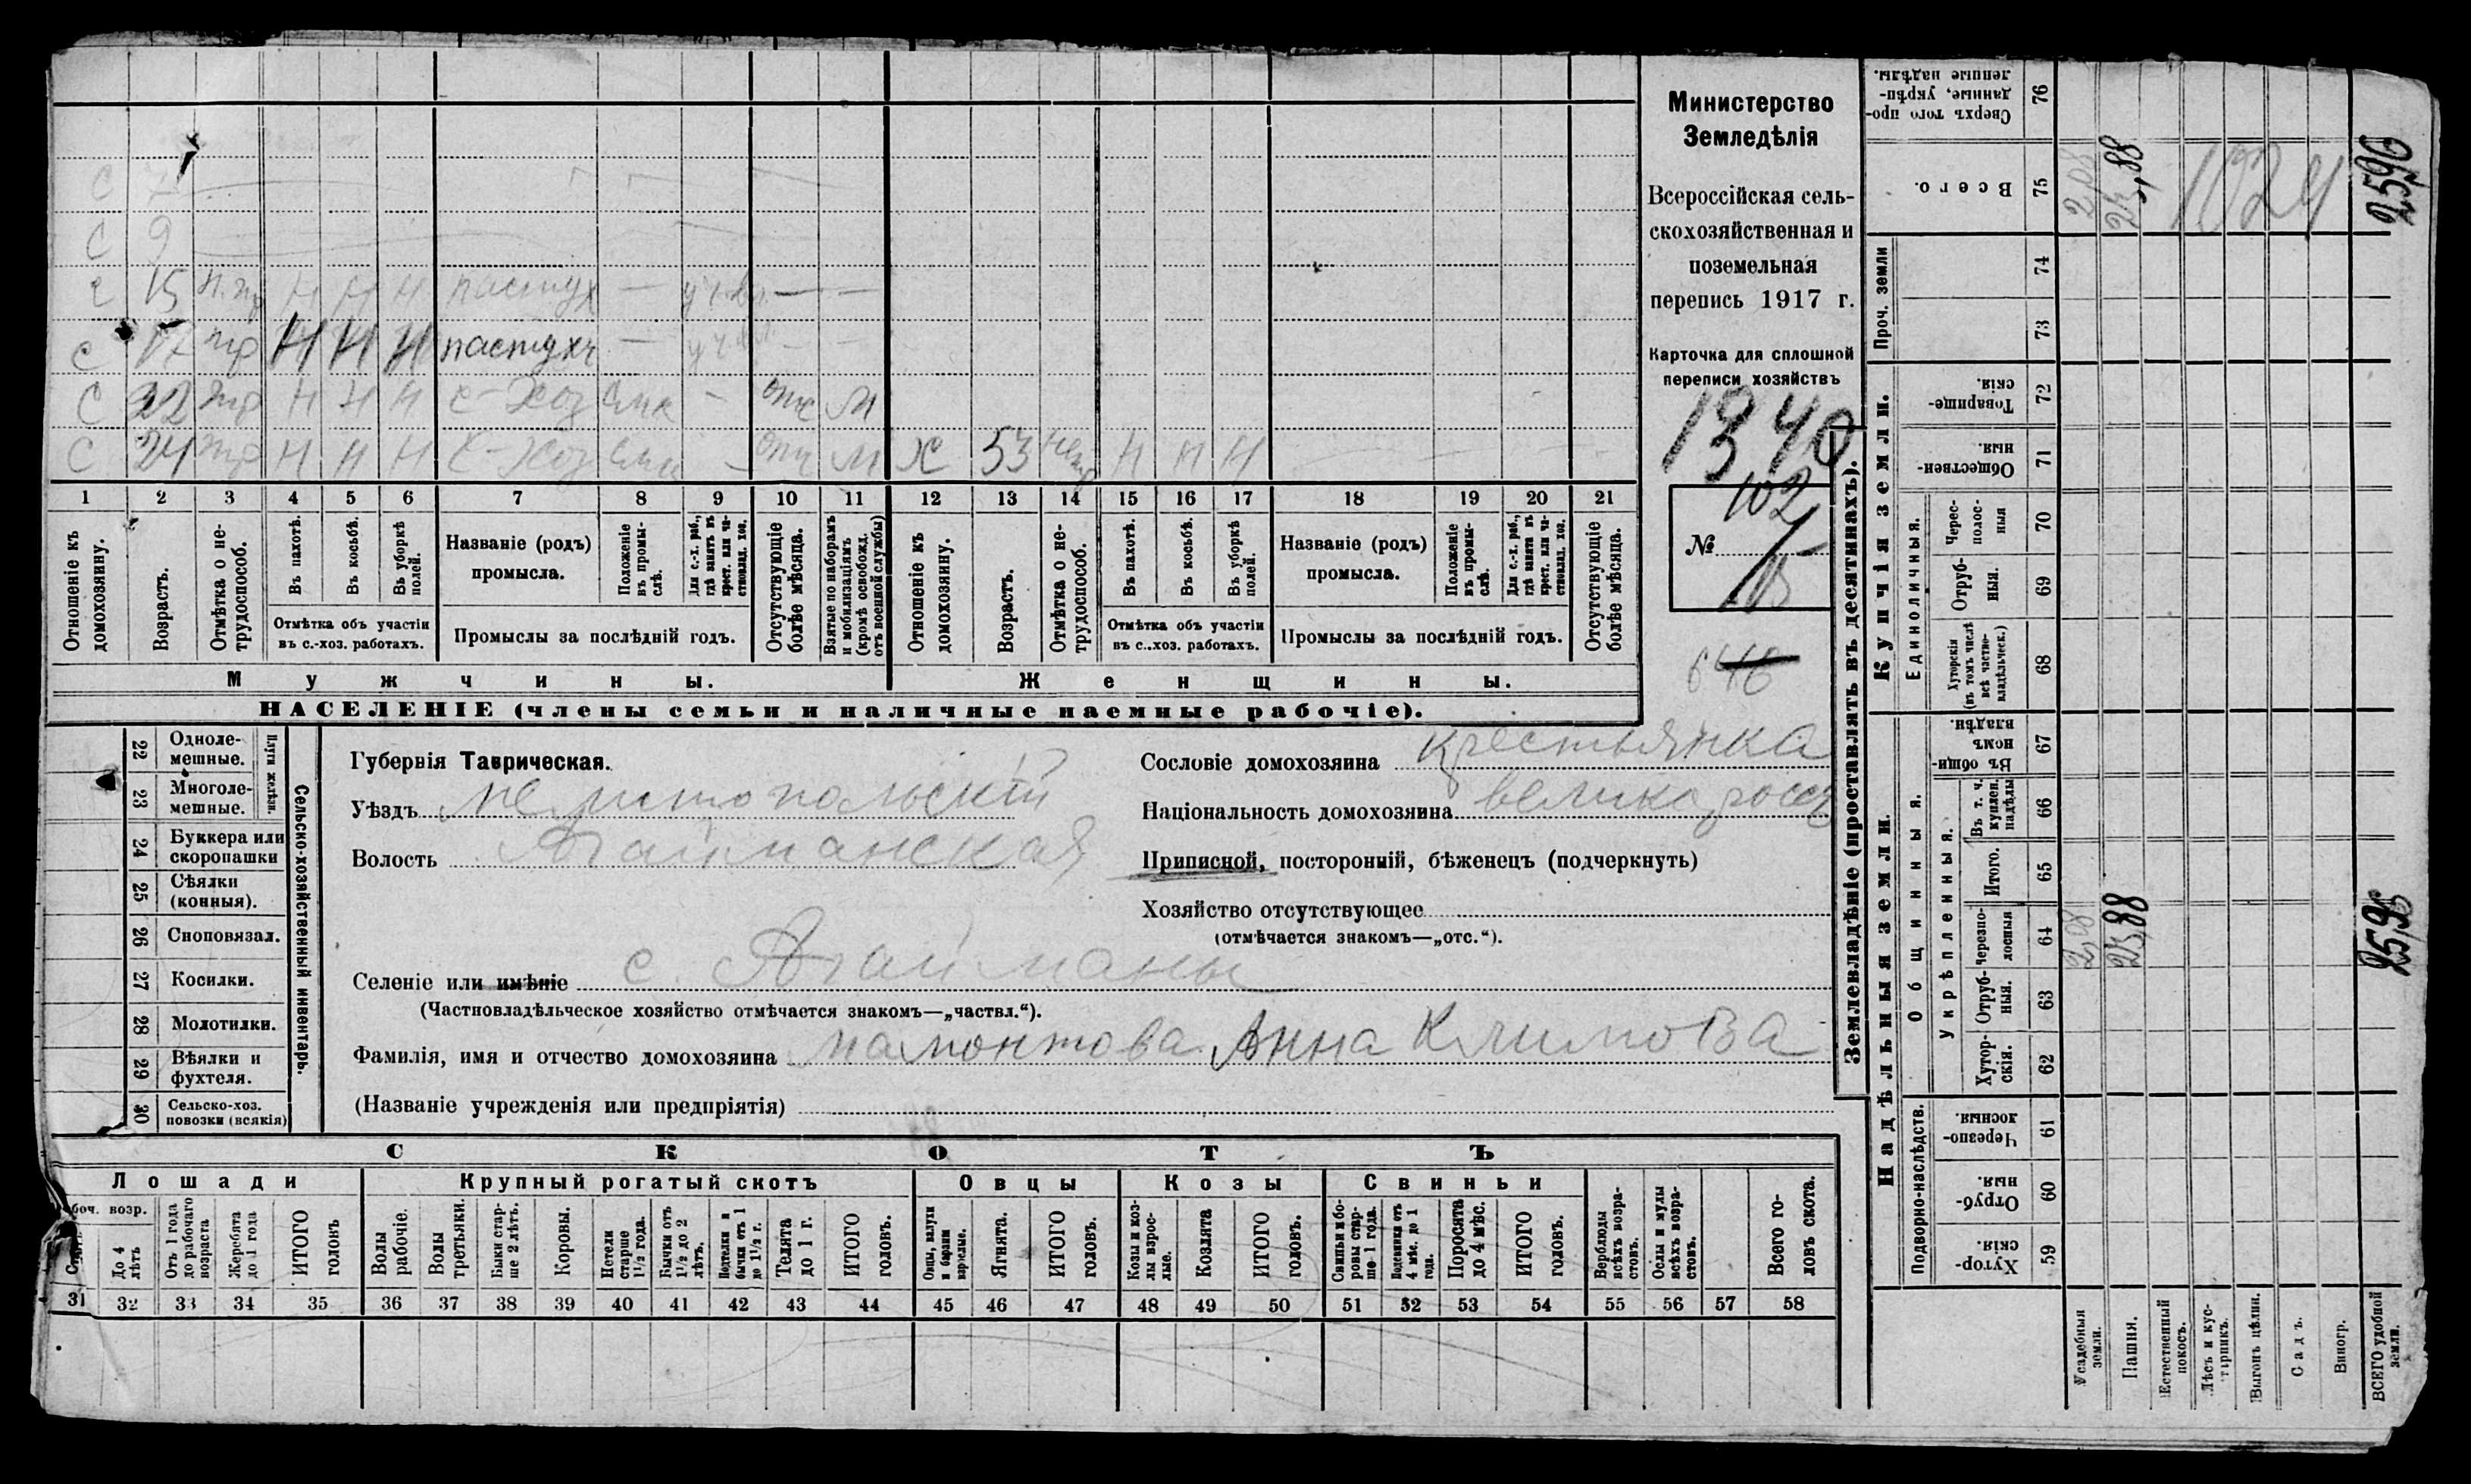 Министерство
Земледѣлія
Всероссійская сель-
скохозяйственная и
поземельная
перепись 1917 г.
Карточка для сплошной
переписи хозяйствъ
1340
102
№
646
с 7
с 9
с 15 н.тр Н Н Н пастух —
с 17 тр Н Н Н пастухъ —
с 22 тр Н Н Н с-хоз — отс М
с 24 тр Н Н Н с-хоз — отс М х 53 Н Н Н
1 2 3 4 5 6 7 8 9 10 11 12 13 14 15 16 17 18 19 20 21
Отношеніе къ домохозяину.
Возрастъ.
Отмѣтка о не-трудоспособ.
Въ пахотѣ.
Въ косьбѣ.
Въ уборкѣ полей.
Отмѣтка объ участіи
въ с.-хоз. работахъ.
Названіе (родъ)
промысла.
Положеніе въ промы-слѣ.
Для с.-х. раб., гдѣ занятъ въ крест. или ча-стновлад. хоз.
Промыслы за послѣдній годъ.
Отсутствующіе болѣе мѣсяца.
Взятые по наборамъ и мобилизаціямъ (кромѣ освобожд. отъ военной службы)
Отношеніе къ домохозяину.
Возрастъ.
Отмѣтка о не-трудоспособ.
Въ пахотѣ.
Въ косьбѣ.
Въ уборкѣ полей.
Отмѣтка объ участіи
въ с..хоз. работахъ.
Названіе (родъ)
промысла.
Положеніе въ промы-слѣ.
Для с.-х. раб., гдѣ занята въ крест. или ча-стновлад. хоз.
Промыслы за послѣдній годъ.
Отсутствующіе болѣе мѣсяца.
Мужчины.
Женщины.
НАСЕЛЕНІЕ (члены семьи и наличные наемные рабочіе).
22 Одноле-мешные.
23 Многоле-мешные.
Плуги желѣзн.
24 Буккера или скоропашки
25 Сѣялки (конныя).
26 Сноповязал.
27 Косилки.
28 Молотилки.
29 Вѣялки и фухтеля.
30 Сельско-хоз. повозки (всякія)
Сельско-хозяйственный инвентарь.
Губернія Таврическая.
Уѣздъ Мелитопольскій
Волость Агайманская
Селеніе или имѣніе с. Агайманы
(Частновладѣльческое хозяйство отмѣчается знакомъ—„частвл.“).
Фамилія, имя и отчество домохозяина Мамонтова Анна Климова
(Названіе учрежденія или предпріятія)
Сословіе домохозяина крестьянка
Національность домохозяина великоросс
Приписной, посторонній, бѣженецъ (подчеркнуть)
Хозяйство отсутствующее
(отмѣчается знакомъ—„отс.“).
СКОТЪ
Лошади
Крупный рогатый скотъ
Овцы
Козы
Свиньи
боч. возр.
До 4 лѣтъ
Отъ 1 года до рабочаго возраста
Жеребята до 1 года
ИТОГО головъ
Волы рабочіе.
Волы третьяки.
Быки стар-ше 2 лѣтъ.
Коровы.
Нетели старше 1½ года.
Бычки отъ 1½ до 2 лѣтъ.
Подтелки и бычки отъ 1 до 1½ г.
Телята до 1 г.
ИТОГО головъ.
Овцы, валухи и бараны взрослые.
Ягнята.
ИТОГО головъ.
Козы и коз-лы взрос-лые.
Козлята
ИТОГО головъ.
Свиньи и бо-ровы стар-ше 1 года.
Подсвинки отъ 4 мѣс. до 1 года.
Поросята до 4 мѣс.
ИТОГО головъ.
Верблюды всѣхъ возра-стовъ.
Ослы и мулы всѣхъ возра-стовъ.
Всего го-ловъ скота.
31 32 33 34 35 36 37 38 39 40 41 42 43 44 45 46 47 48 49 50 51 52 53 54 55 56 57 58
Землевладѣніе (проставлять въ десятинахъ).
Надѣльныя земли.
Купчія земли.
Проч. земли
Подворно-наслѣдств.
Общинныя.
Укрѣпленныя.
Единоличныя.
Хутор-скія. 59
Отруб-ныя. 60
Черезпо-лосныя 61
Хутор-скія. 62
Отруб-ныя. 63
Черезпо-лосныя 64
Итого. 65
Въ т. ч. куплен. надѣлы 66
Въ общин-номъ владѣн. 67
Хуторскія (въ томъ числѣ всѣ частно-владѣльческ.) 68
Отруб-ныя. 69
Черес-полос-ныя 70
Обществен-ныя. 71
Товарище-скія. 72
73
74
Всего. 75
Сверхъ того про-данные, укрѣп-ленные надѣлы. 76
Усадебныя земли. 2,08 2,08
Пашня. 23,88 23,88
Естественный покосъ.
Лѣсъ и кус-тарникъ.
Выгонъ цѣлин.
Садъ.
Виногр.
ВСЕГО удобной земли. 25,96 25,96
1924